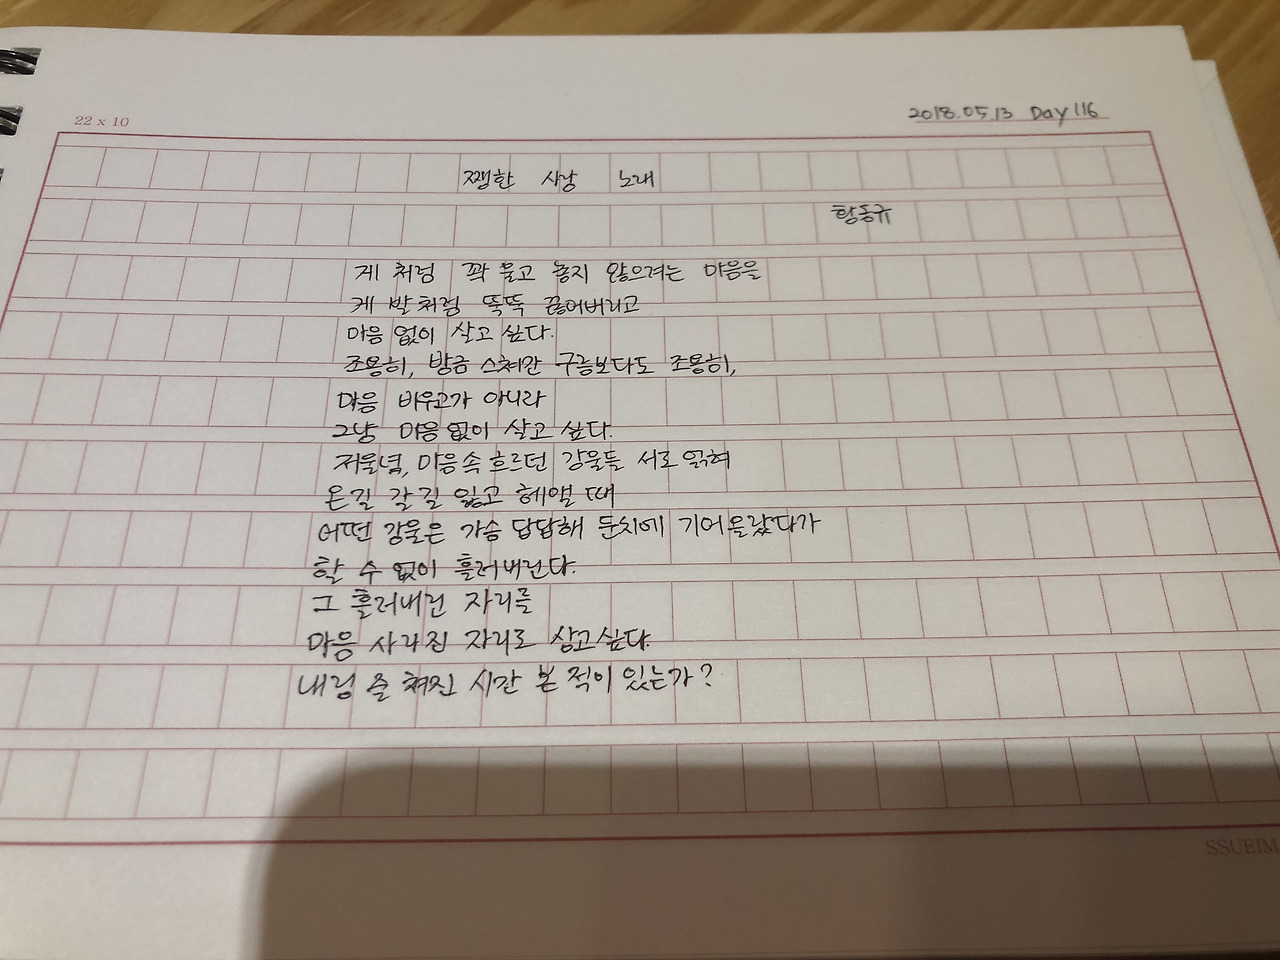 22 x 10
2018.05.13 Day 116
쨍한 사랑 노래
황동규
게 처럼 꽉 물고 놓지 않으려는 마음을
게 발처럼 뚝뚝 끊어버리고
마음 없이 살고 싶다.
조용히, 방금 스쳐간 구름보다도 조용히,
마음 비우고가 아니라
그냥 마음 없이 살고 싶다.
저물녘, 마음속 흐르던 강물들 서로 얽혀
온길 갈길 잃고 헤맬 때
어떤 강물은 가슴 답답해 둔치에 기어올랐다가
할 수 없이 흘러내린다.
그 흘러내린 자리를
마음 사라진 자리로 삼고싶다.
내림 줄 쳐진 시간 본 적이 있는가?
SSUEIM